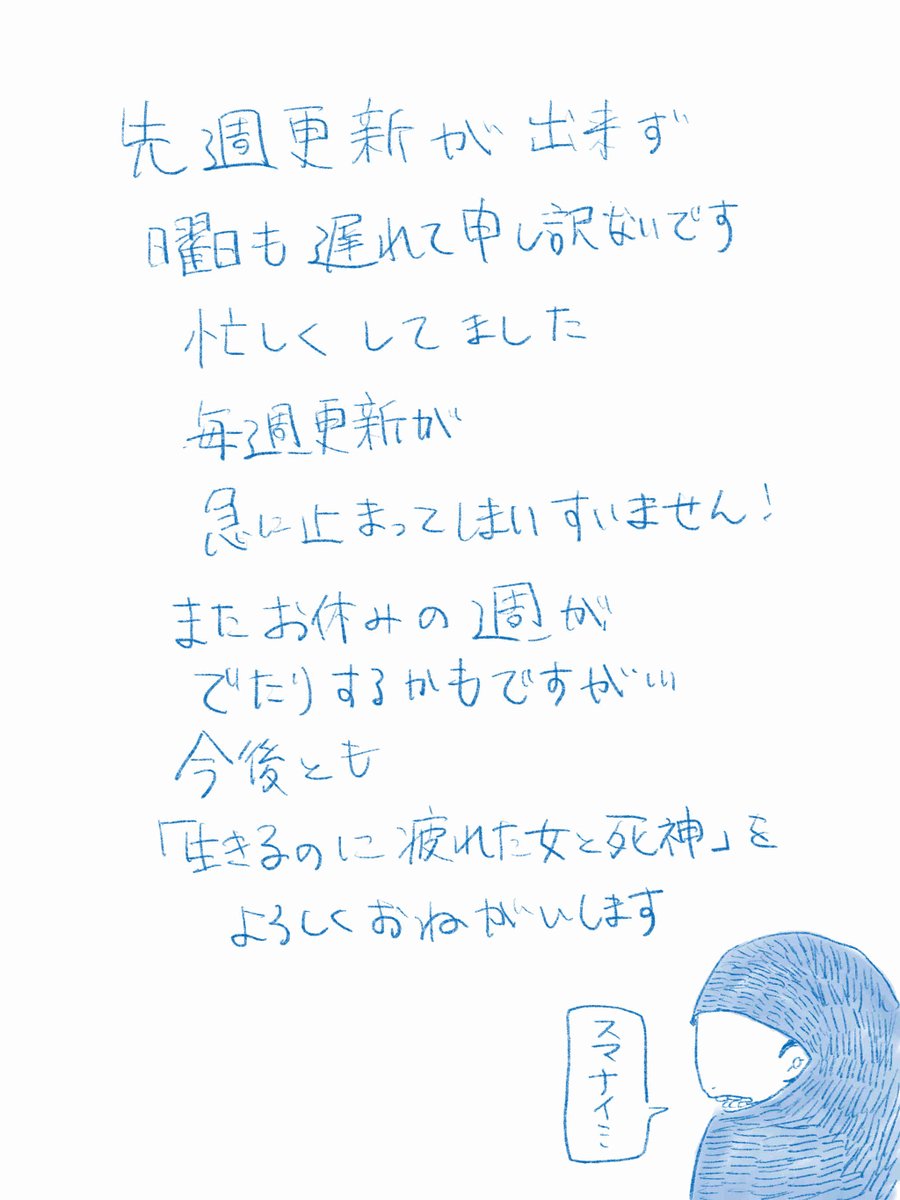 先週更新が出来ず
日曜日も遅れて申し訳ないです
忙しくしてました
毎週更新が
急に止まってしまいすいません!
またお休みの週が
でたりするかもですが…
今後とも
「生きるのに疲れた女と死神」を
よろしくおねがいします
スマナイミ